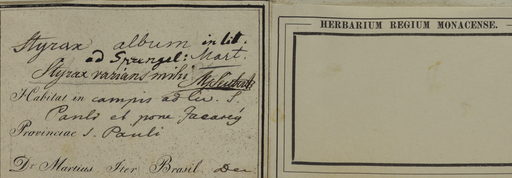 Styrax album in lit.
ad Sprengel: Mart.
Styrax varians mihi
Habitat in campis ad Civ. S.
Pauli et pone Jacarey
Provinciae S. Pauli
Dr. Martius Iter Brasil. Dec
HERBARIUM REGIUM MONACENSE.